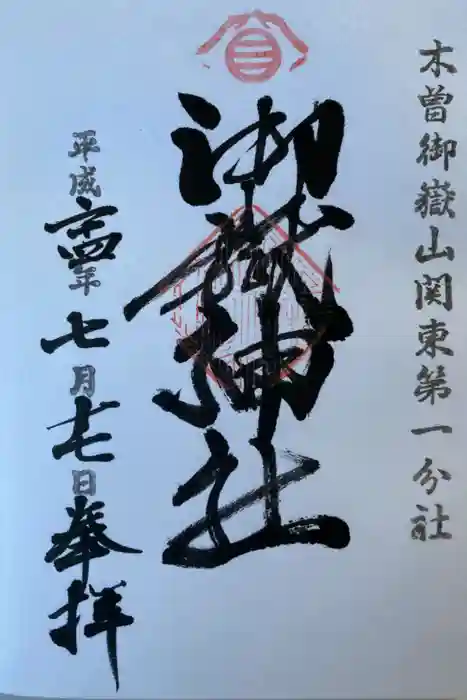 木曽御嶽山関東第一分社
御嶽神社
平成廿四年七月十七日奉拝